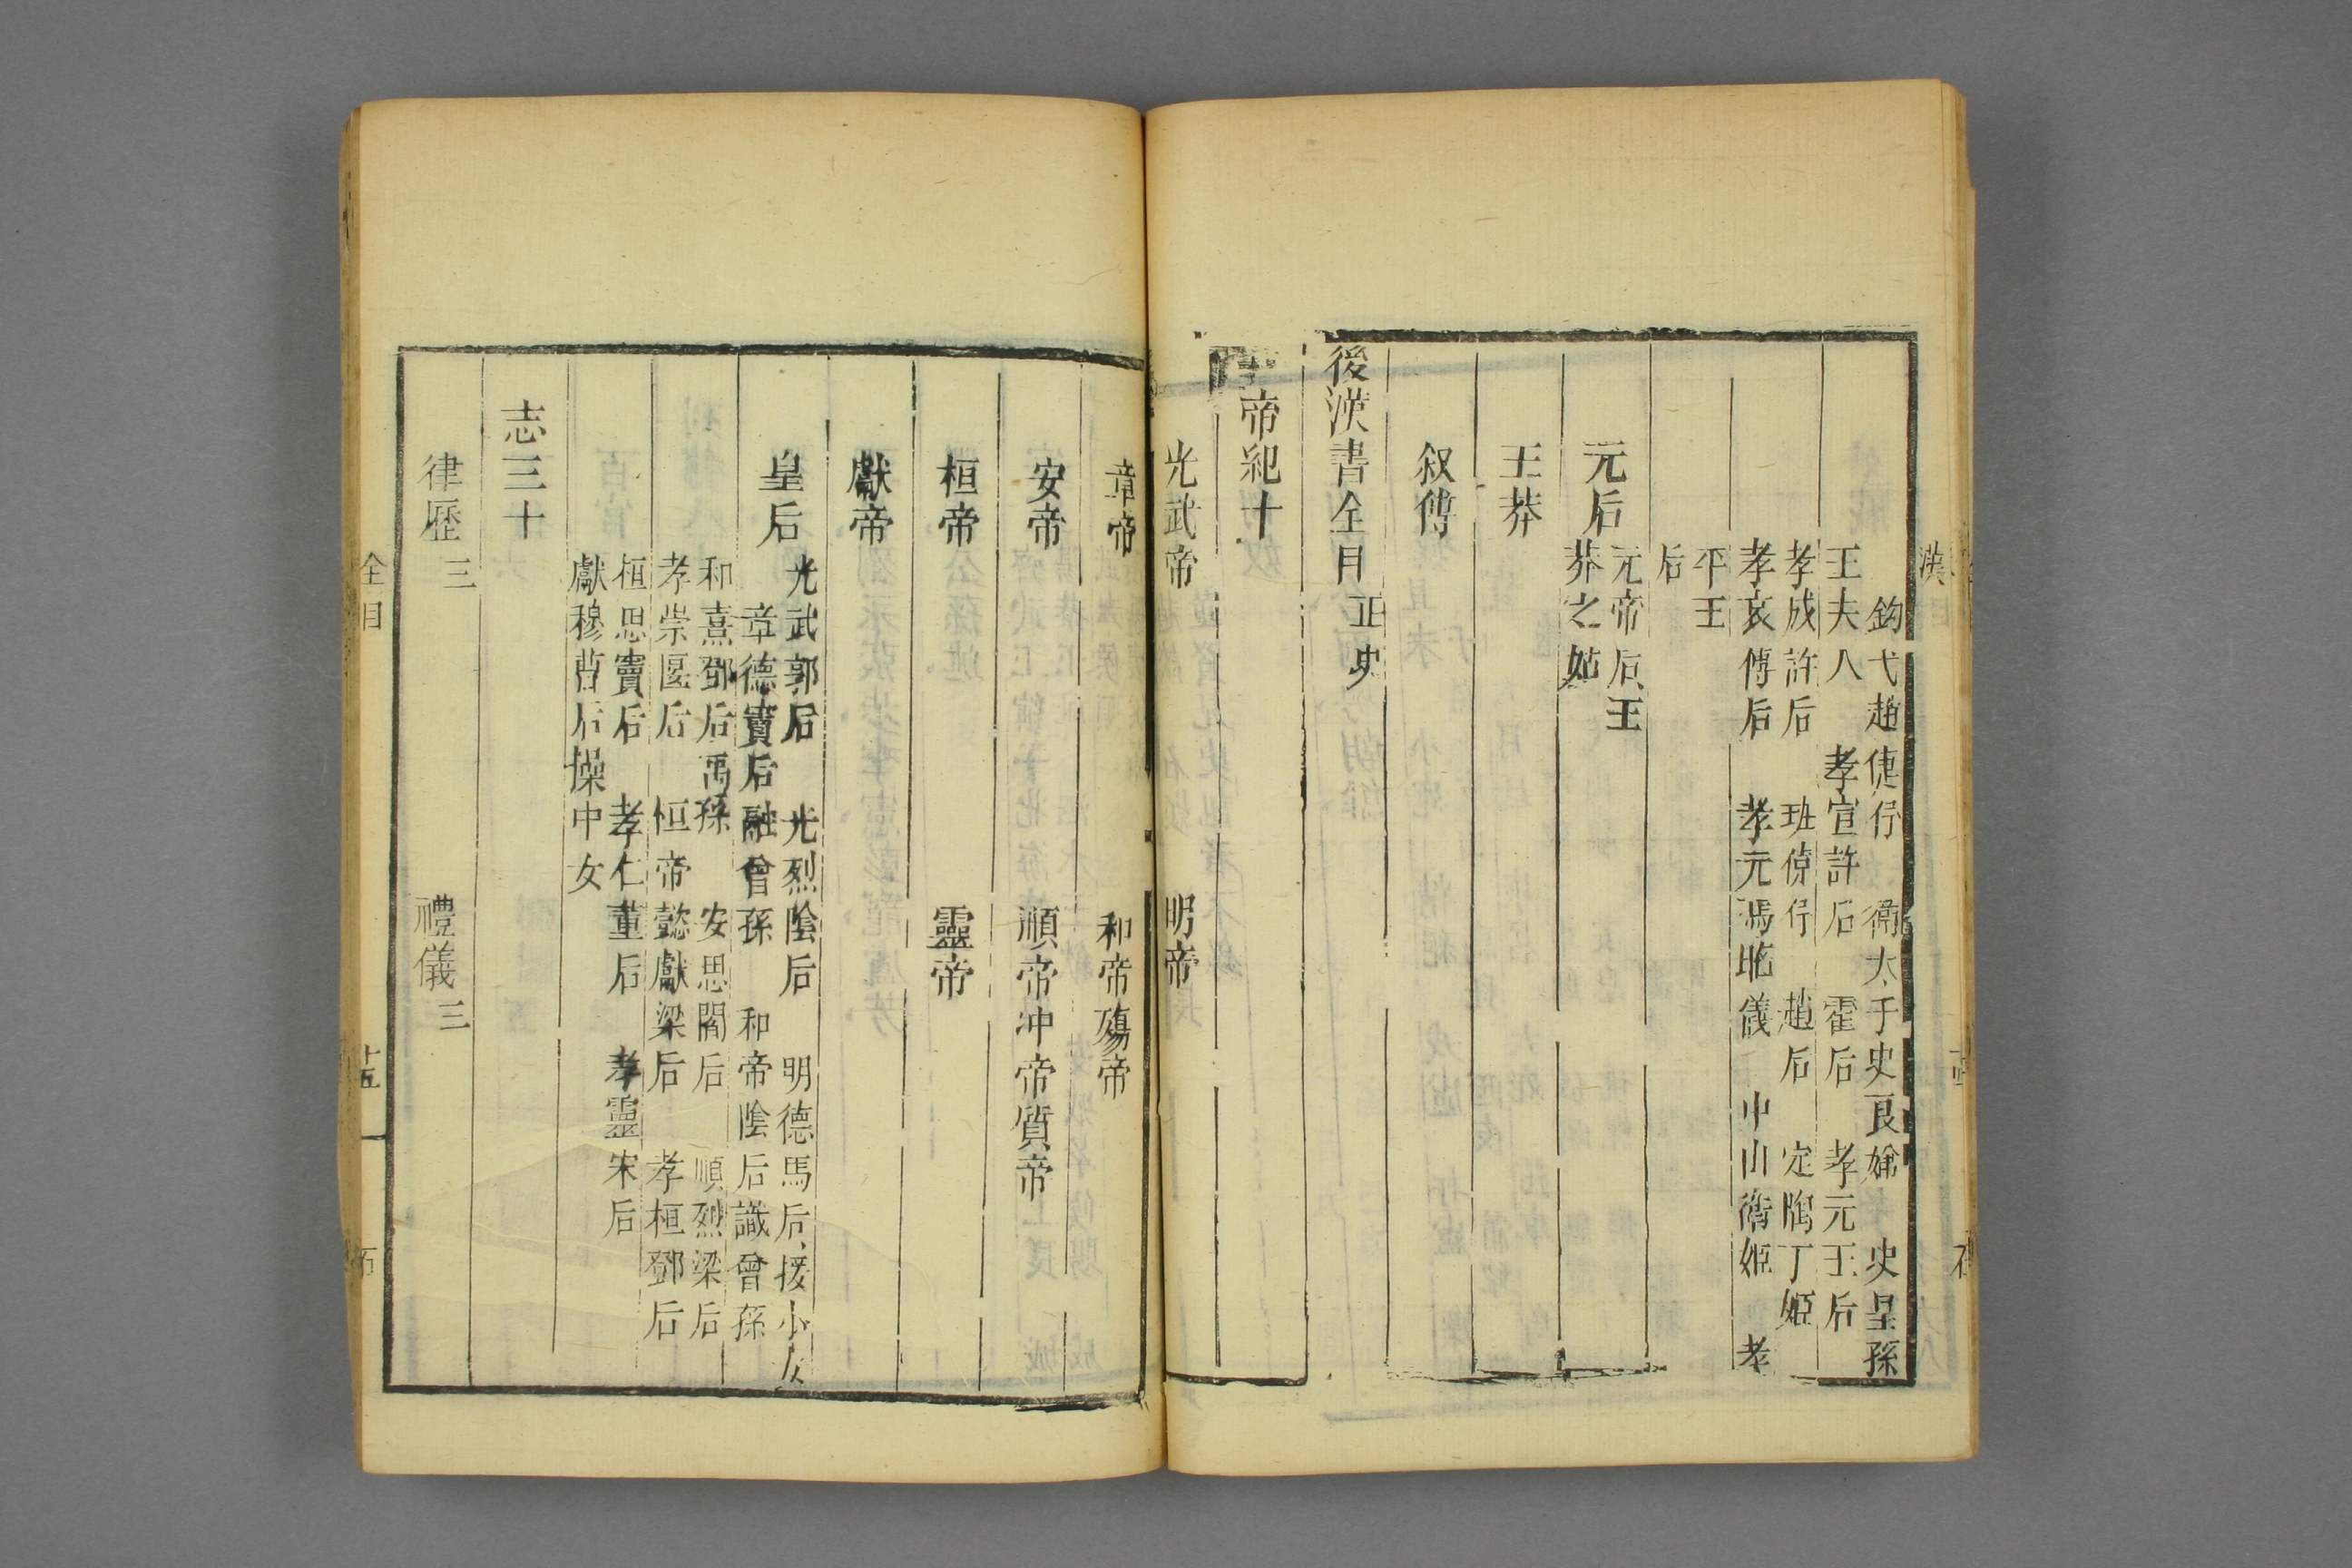 鈎弋趙倢伃　衛太子史良娣　史皇孫
王夫人　孝宣許后　霍后　孝元王后
孝成許后　班倢伃　趙后　定陶丁姬
孝哀傅后　孝元馮昭儀　中山衛姬　孝
平王
后
元后
元帝后王
莽之姑
王莽
叙傳
後漢書全目正史
帝紀十
光武帝　明帝
章帝　和帝殤帝
安帝　順帝冲帝質帝
桓帝　靈帝
獻帝
皇后
光武郭后　光烈陰后　明德馬后援小女
章德竇后融曾孫　和帝陰后識曾孫
和熹鄧后禹孫　安思閻后　順烈梁后
孝崇匽后　恒帝懿獻梁后　孝桓鄧后
桓思竇后　孝仁董后　孝靈宋后
獻穆曹后操中女
志三十
律歷三　禮儀三
全目　十五